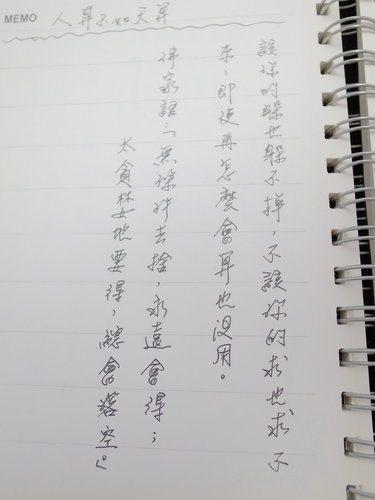 MEMO 人算不如天算
該你的躲也躲不掉，不該你的求也求不
來，即使再怎麼會算也沒用。
佛家語：「無條件去捨，永遠會得；
太貪婪地要得，總會落空。」